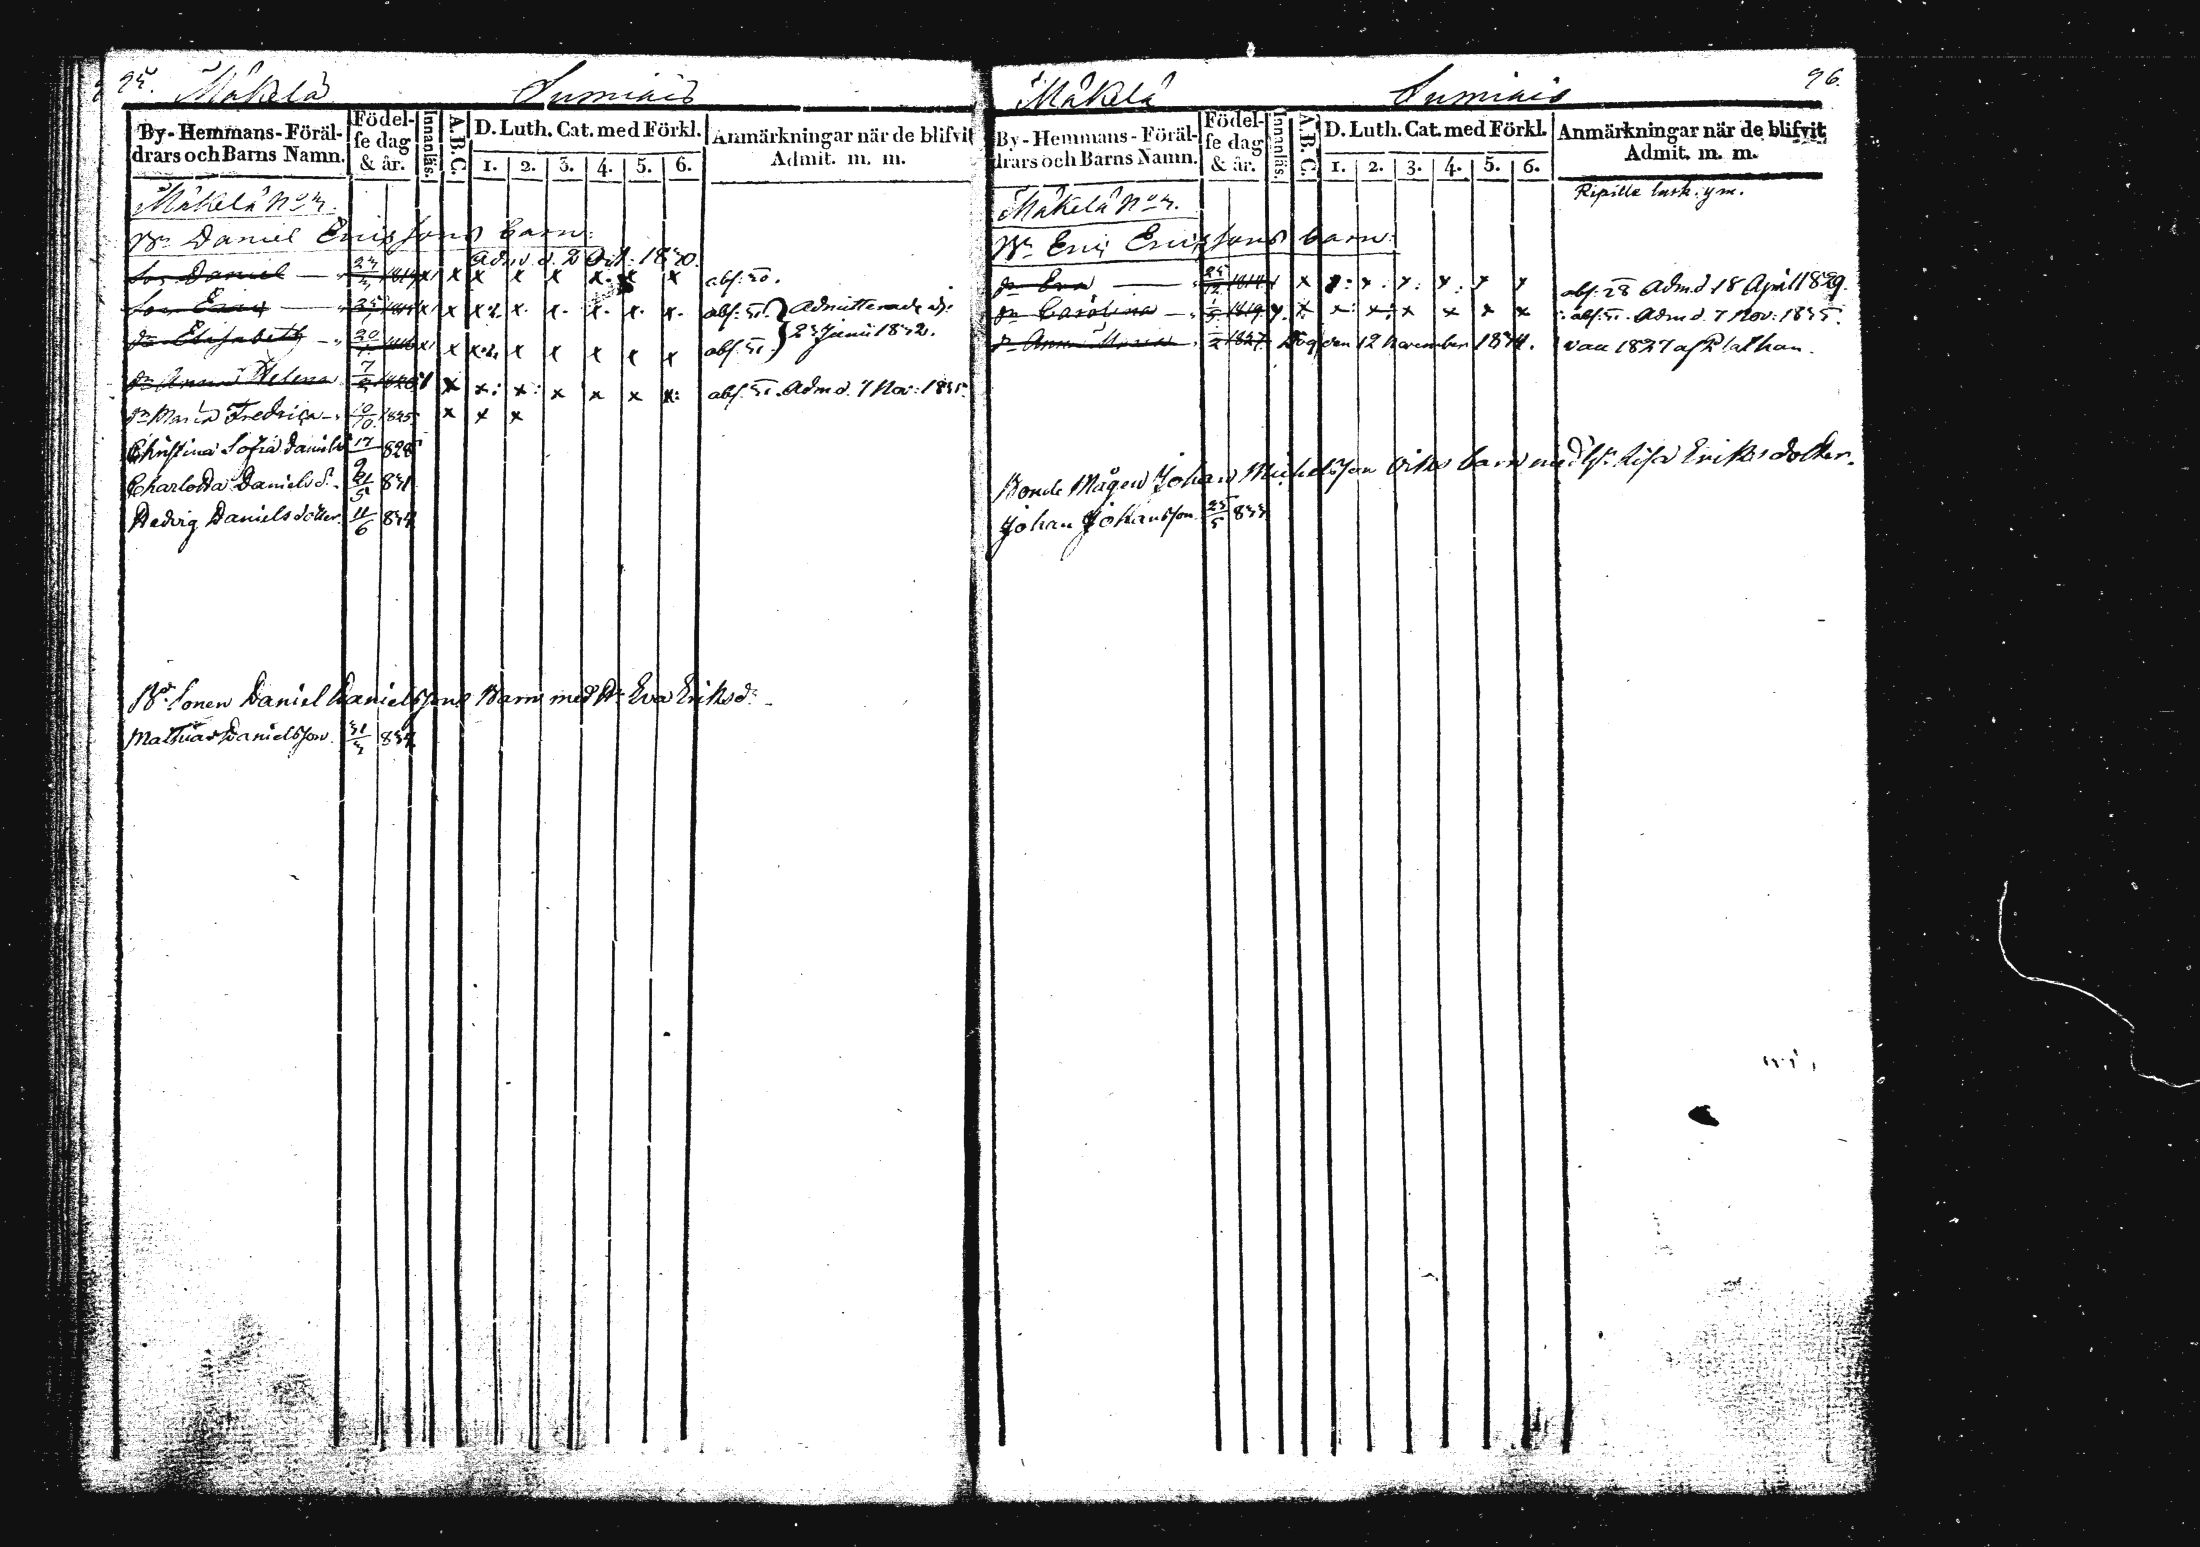 95. Mäkelä Sumiais
By-Hemmans-Föräl-
drars och Barns Namn.
Födel-
se dag
& år.
Innanläs.
A.B.C.
D. Luth. Cat. med Förkl.
1. 2. 3. 4. 5. 6.
Anmärkningar när de blifvit
Admit. m. m.
Mäkelä No 3.
Bn Daniel Ericssons barn:
Adm. d. 2 Oct. 1830.
Son Daniel x x x x x x x abs. 30.
Son Eric x x x x x x x abs. 31. Admitterade d.
23 Junii 1832.
dr Elisabeth 20 x x x x x x x abs. 31.
dr Anna Helena 7 x x x x x x x abs. 31. Adm d. 7 Nov: 1835.
dr Maria Fredrica 10/10 1825 x x x
Christina Sofia Daniels 17 828
Charlotta Daniels d. 21/5 831
Hedvig Daniels dotter 11/6 834
Bd. Sonen Daniel Danielssons Barn med H. Eva Eriksd:
Mathias Danielsson 31/3 834
Mäkelä Sumiais 96.
By-Hemmans-Föräl-
drars och Barns Namn.
Födel-
se dag
& år.
Innanläs.
A.B.C.
D. Luth. Cat. med Förkl.
1. 2. 3. 4. 5. 6.
Anmärkningar när de blifvit
Admit. m. m.
Ripille lask. ym.
Mäkelä No 3.
Bn Eric Ericssons barn:
dr Eva 1814 x x x x x x abs. 28 Adm. d 18 April 1829.
dr Carolina 1819 x x x x x x x abs. 31. Adm d. 7 Nov: 1835.
dr Anna Maria 1827 Dog den 12 November 1834. vacc 1827 af Plathan.
Bonde Mågen Johan Michelsson Oikos barn med H. Lisa Eriksdotter.
Johan Johansson 25/5 833